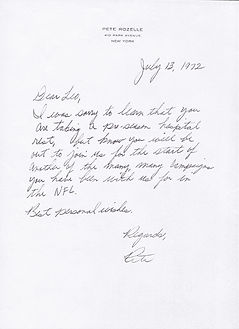 PETE ROZELLE
410 PARK AVENUE
NEW YORK
July 13, 1972
Dear Leo,
I was sorry to learn that you
are taking a pre-season hospital
rest, but know you will be
out to join us for the start of
another of the many, many campaigns
you have been with us for in
the NFL.
Best personal wishes.
Regards,
Pete